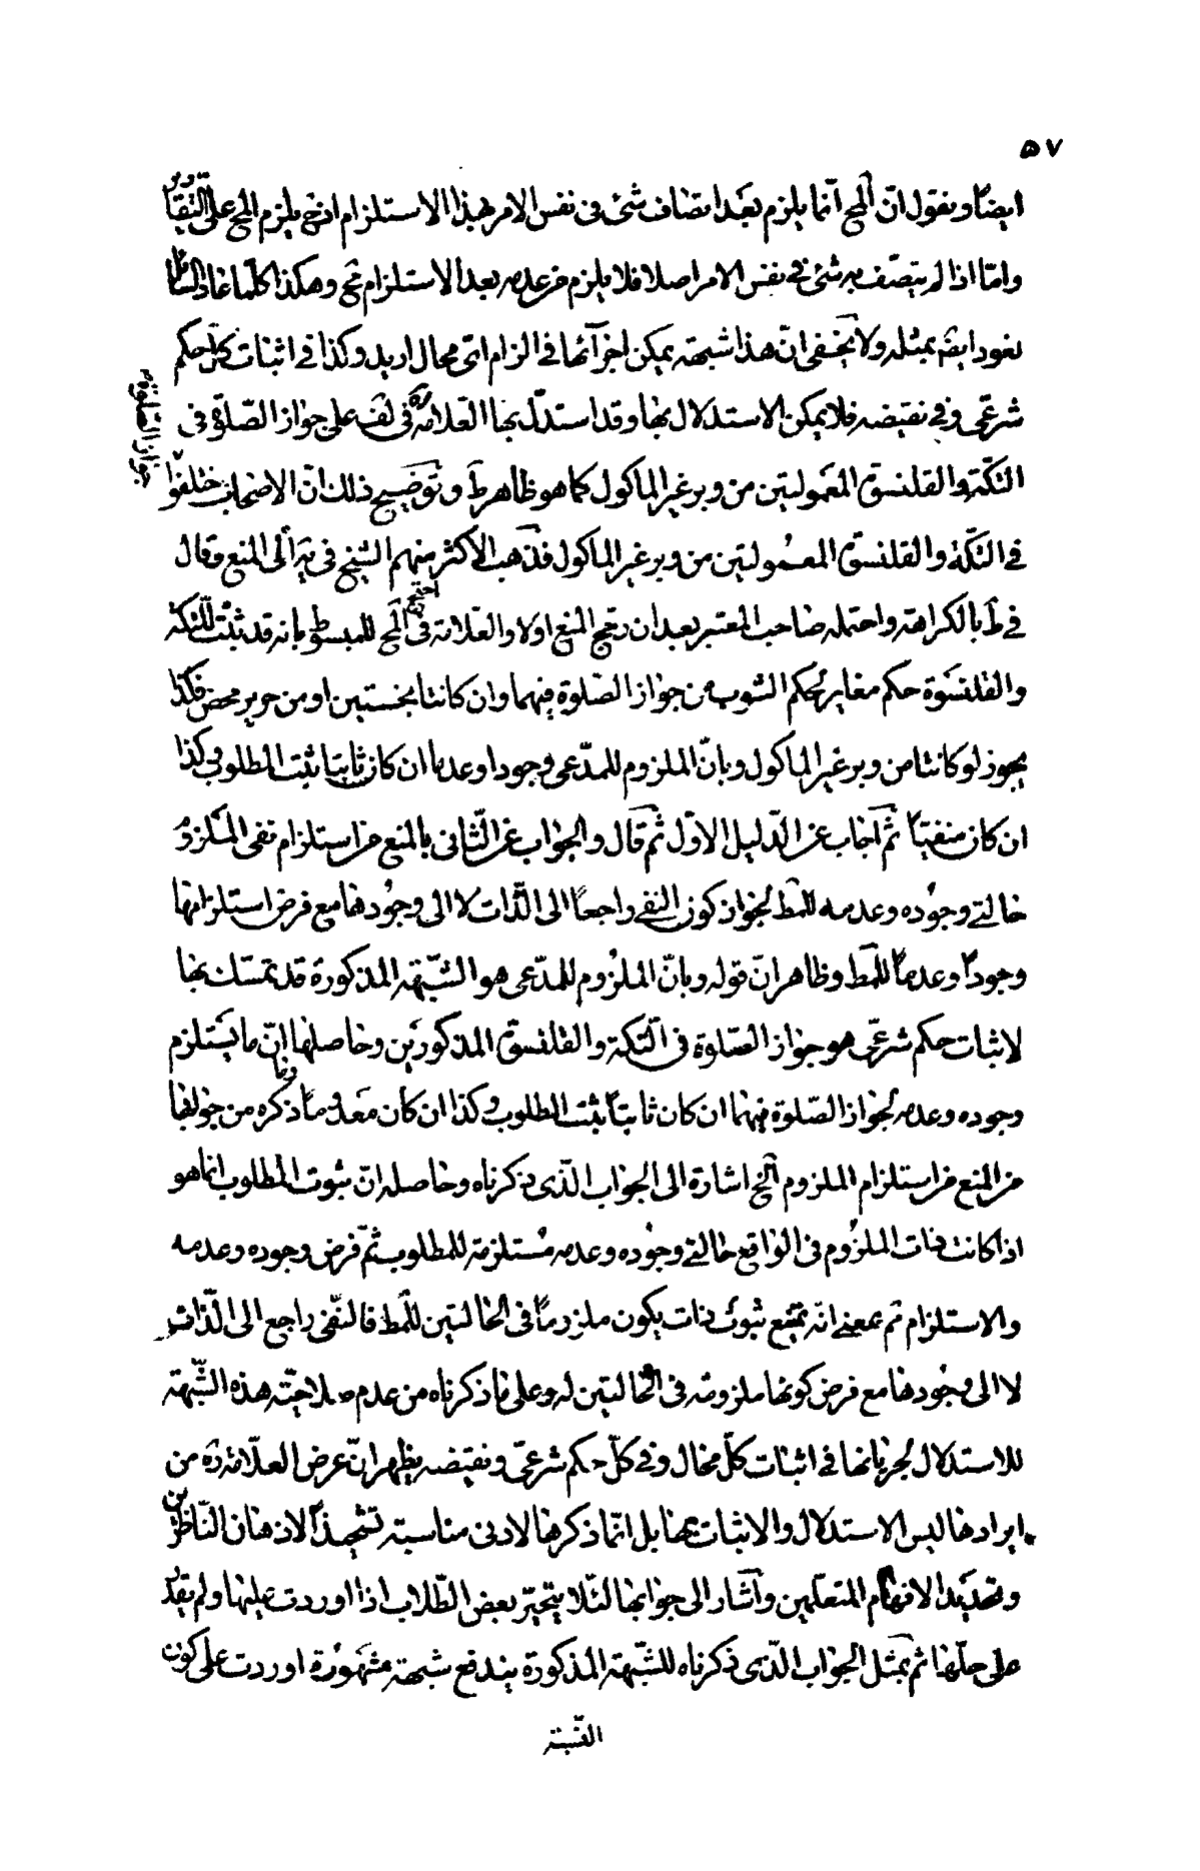 ۵۷
ايضا و نقول انّ المح انّما يلزم بعد اتصاف شئ فى نفس الامر بهذا الاستلزام اذ ح يلزم المح على التقادير
وامّا اذا لم يتصّف به شئ فى نفس الامر اصلا فلا يلزم من عدمه بعد الاستلزام مح وهكذا كلّما عاد السائل
نعود ايضم بمثله ولا يخفى انّ هذا شبهة يمكن اجراؤها فى الزام اىّ محال اريد وكذا فى اثبات كلّ حكم
شرعّى وفى نقيضه فلا يمكن الاستدلال بها وقد استدلّ بها العّلامة ره فى لف على جواز الصّلوة فى
جواز الصّلوة
التكّة والقلنسوة المعمولتين من وبر غير الماكول كما هو ظاهر ط وتوضيح ذلك انّ الاصحاب اختلفوا
فى التكّة والقلنسوة المعمولتين من وبر غير الماكول فذهب الأكثر منهم الشيخ فى يه الى المنع وقال
فى ط بالكراهة واحتمله صاحب المعتبر بعد ان رجح المنع اولا والعّلامة فى المح احتج للمبسوط بانه قد ثبت للتّكة
والقلنسوة حكم مغاير لحكم الثوب من جواز الصّلوة فيهما وان كانتا نجستين او من حرير محض فكذا
يجوز لو كانتا من وبر غير الماكول وبانّ الملزوم للمدّعى وجودا وعدما ان كان ثابتا يثبت المطلوب وكذا
ان كان منفيّا ثم اجاب عن الدّليل الاوّل ثم قال والجواب عن الثّانى بالمنع من استلزام نفى الملزوم
حالتى وجوده وعدمه للمط لجواز كون النفى راجعا الى الذّات لا الى وجودها مع فرض استلزامها
وجودا وعدما للمط وظاهر انّ قوله وبانّ الملزوم للمدّعى هو الشّبهة المذكورة قد تمسّك بها
لاثبات حكم شرعّى هو جواز الصّلوة فى التّكة والقلنسوة المذكورتين وحاصلها انّ ما يستلزم
وجوده وعدمه لجواز الصّلوة فيهما ان كان ثابتا يثبت المطلوب وكذا ان كان معدوما وما ذكره من جوابها
من المنع من استلزام الملزوم الخ اشارة الى الجواب الّذى ذكرناه وحاصله انّ ثبوت المطلوب انما هو
اذا كانت ذات الملزوم فى الواقع حالتى وجوده وعدمه مستلزمة للمطلوب ثمّ فرض وجوده وعدمه
والاستلزام ثم بمعنى انّه يمتنع ثبوت ذات يكون ملزوما فى الحالتين للمط فالنّفى راجع الى الذّات
لا الى وجودها مع فرض كونها ملزومة فى الحالتين له وعلى ما ذكرناه من عدم صلاحيّة هذه الشّبهة
للاستدلال لجريانها فى اثبات كلّ محال وفى كلّ حكم شرعىّ ونقيضه يظهر انّ غرض العلّامة ره من
ايرادها ليس الاستدلال والاثبات بها بل انّما ذكرها لادنى مناسبة تشحيذا لاذهان النّاظرين
وتحديد الافهام المتعلّمين واشار الى جوابها لئلّا يتحيّر بعض الطّلاب اذا اوردت عليها ولم يقدر
على حلّها ثم بمثل الجواب الّذى ذكرناه للشّبهة المذكورة يندفع شبهة مشهورة اوردت على كون
النّسبة